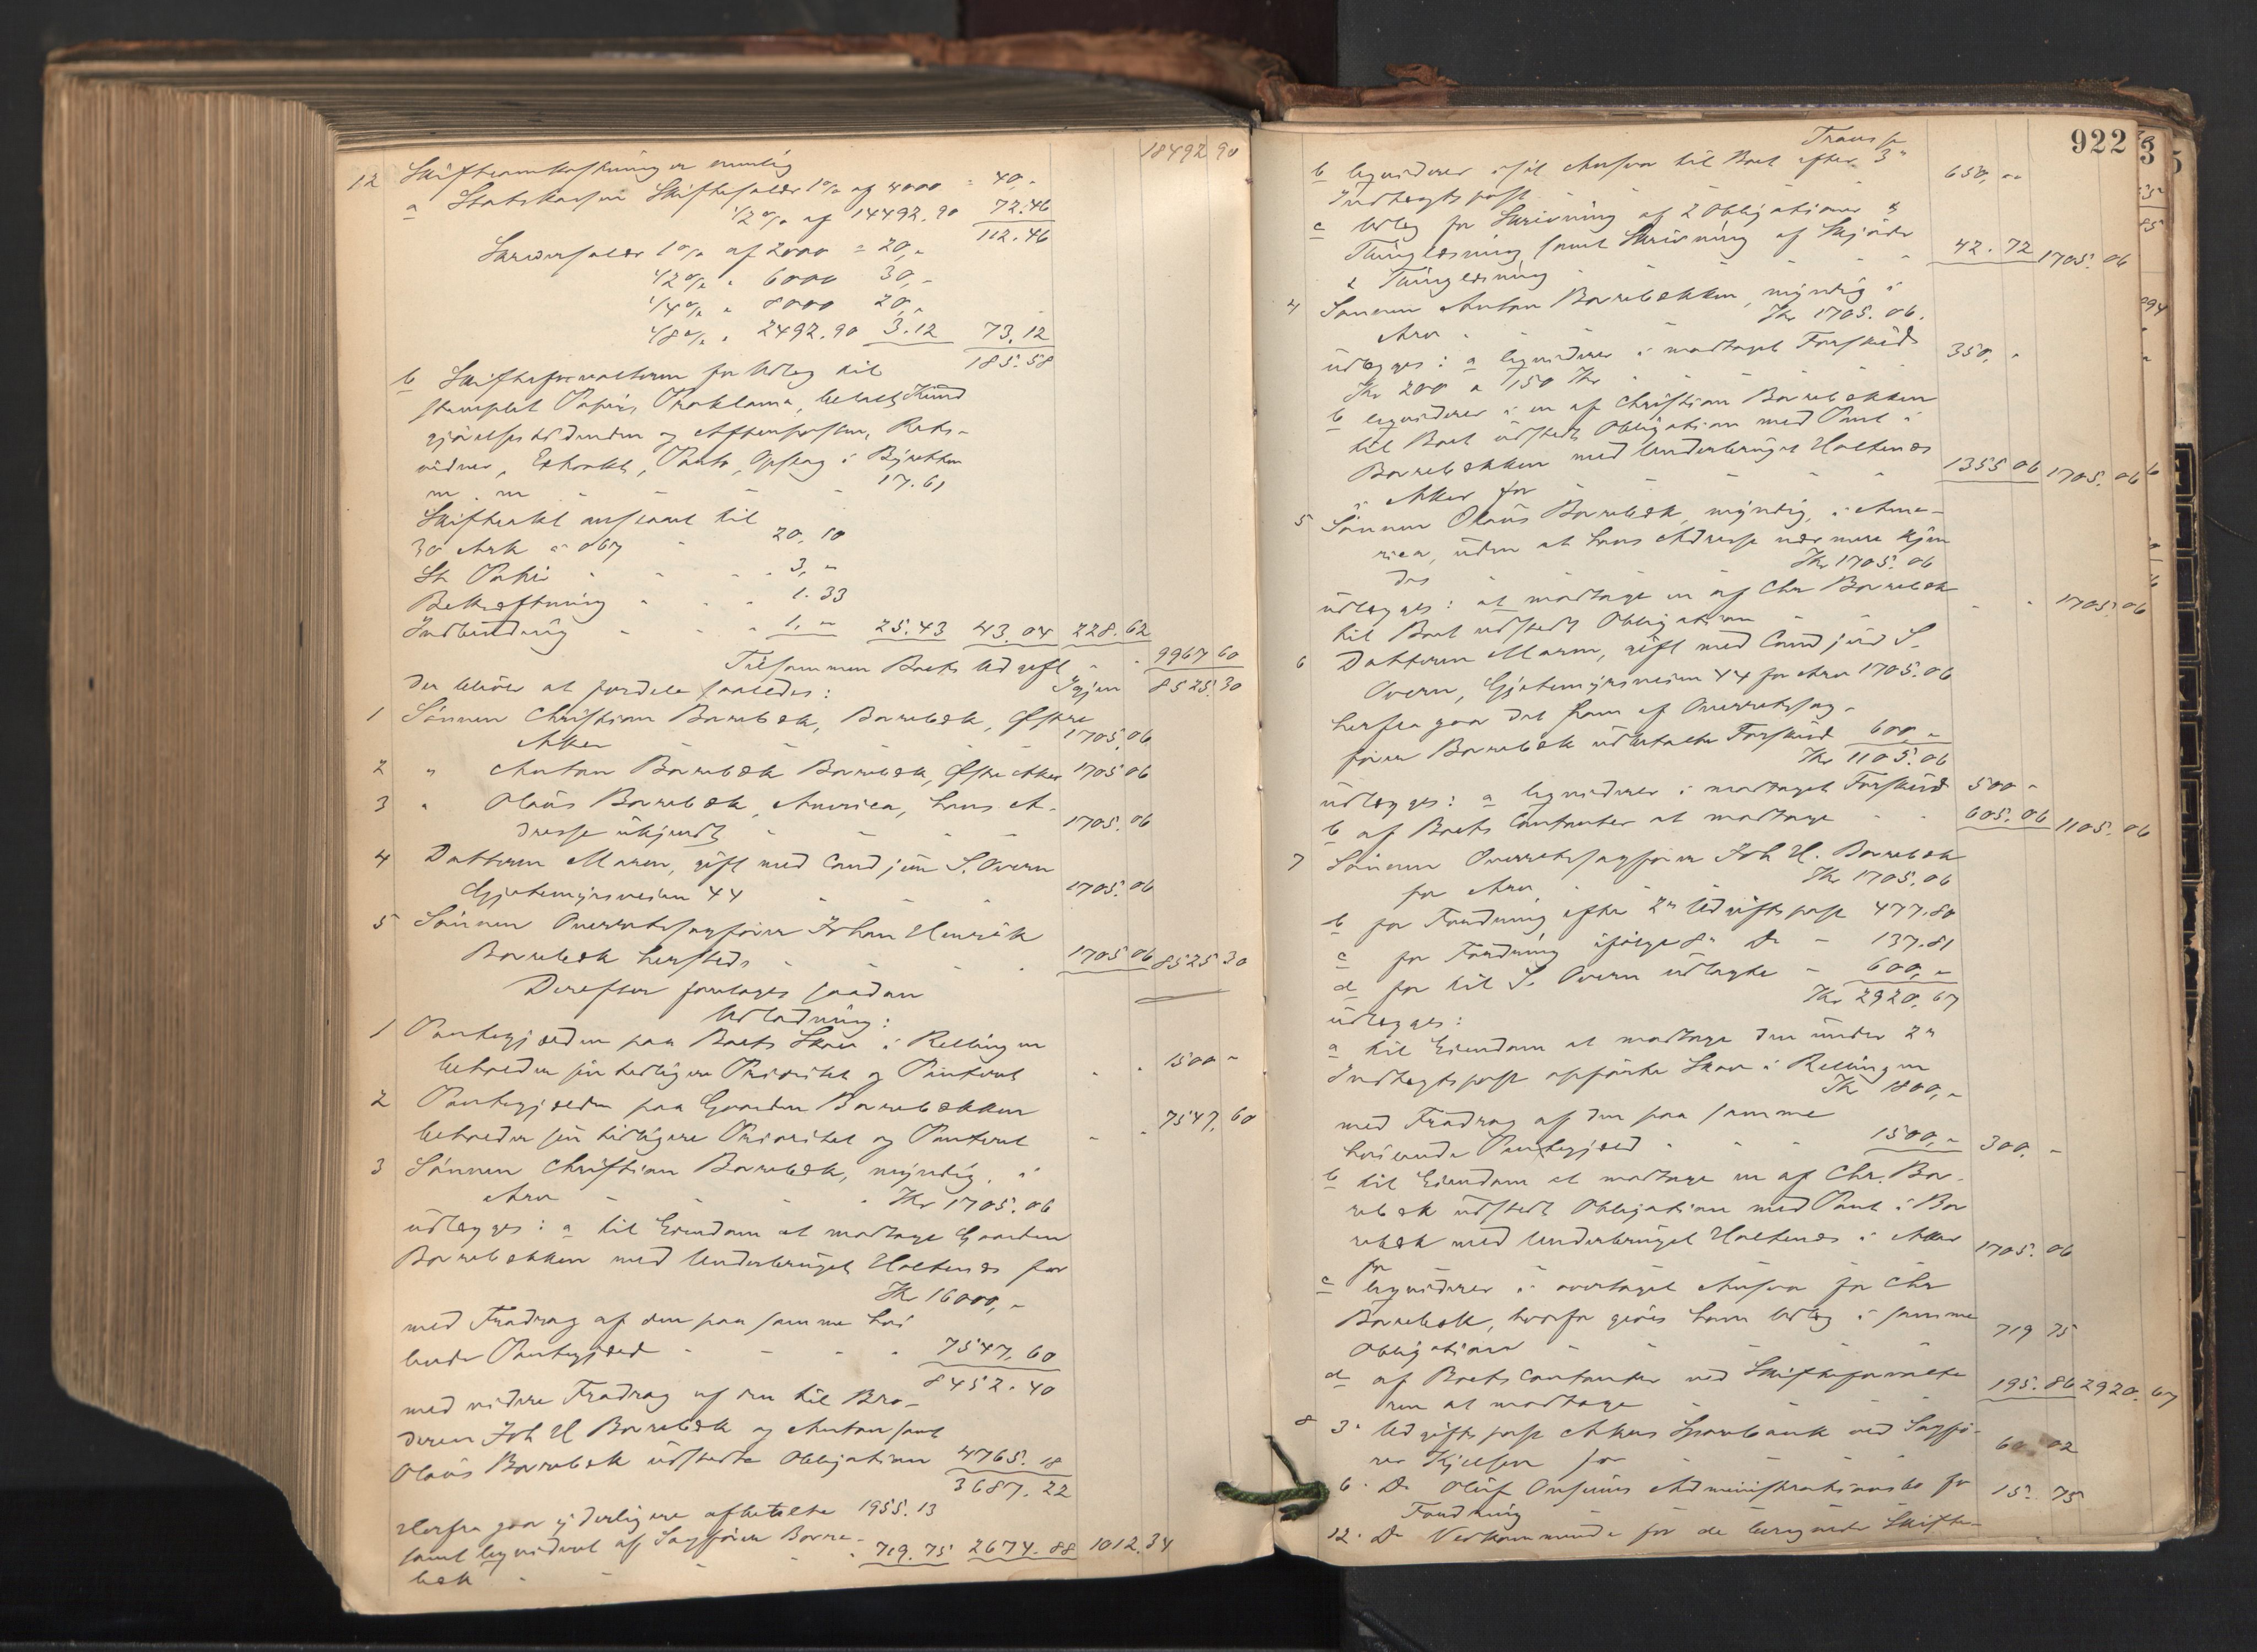 18492 90
12 Skifteomkostninger nemlig
a Statskassen Skiftesalær 1% af 4000 = 40,-
1/2 % af 14492.90 72.46
112.46
Skriversalær 1% af 2000 = 20,-
1/2 % " 6000 30,-
1/4 % " 8000 20,-
1/8 % " 2492.90 3.12 73.12
185.58
b Skifteforvalteren for Udlæg til
stemplet Papir, Proklama, betalt Kund
gjørelsestidenden og Aftenposten, Rets-
vidner, Extrakt, Porto, Opslag i Byretten
m. m - - - 17.61
Skifteakt anslaaet til
30 Ark a 067 - 20,10
St Papir - - - 3,-
Bekræftning - - - 1.33
Indbinding - - - 1,- 25.43 43.04 228.62
Tilsammen Boets Udgift - - 9967 60
Der bliver at fordele saaledes: Igjen 8525.30
1 Sønnen Christian Borrebæk, Borrebæk, Østre
Aker - - - 1705.06
2 " Anton Borrebæk Borrebæk, Østre Aker 1705 06
3 " Olaus Borrebæk, America, hans A-
dresse ukjendt - - - 1705.06
4 Datteren Maren, gift med Cand jur S. Overn
Gjetemyrsveien 44 - - 1705.06
5 Sønnen Overretssagfører Johan Henrik
Borrebæk hersteds - - - 1705 06 8525 30
Derefter foretages saadan
Udlodning:
1 Pantegjælden paa Boets Skov i Rellingen
beholder sin tidligere Prioritet og Panteret - - 1500 -
2 Pantegjælden paa Gaarden Borrebækken
beholder sin tidligere Prioritet og Panteret - - 7547,60
3 Sønnen Christian Borrebæk, myndig, i
Arv - - - Kr 1705.06
udlægges: a til Eiendom at modtage Gaarden
Borrebækken med Underbruget Holtenæs for
Kr 16000,-
med Fradrag af den paa samme hvi
lende Pantegjæld - - - 7547,60
8452.40
med videre Fradrag af den til Brø-
drene Joh H Borrebæk og Anton samt
Olaus Borrebæk udstedte Obligationer 4765.18
3687.22
Herfra gaar yderligere afbetalte 1955.13
samt likvideret af Sagfører Borre-
bæk - - - 719.75 2674.88 1012.34
922
Transp
b likviderer i sit Ansvar til Boet efter 3"
Indtægtspost - - - 650,--
c Udlæg for Skrivning af 2 Obligationer &
Thinglæsning samt Skrivning af Skjøde
& Thinglæsning - - - 42.72 1705.06
4 Sønnen Anton Borrebækken, myndig i
Arv - - Kr 1705.06.
udlægges: a likviderer i modtaget Forskud
Kr 200 & 150 Kr - - 350,-
b likviderer i en af Christian Borrebækken
til Boet udstedt Obligation med Pant i
Borrebækken med Underbruget Holtenæs
i Aker for - - - 1355 06 1705.06
5 Sønnen Olaus Borrebæk, myndig, i Ame-
rica, uden at hans Adresse nærmere kjen
des Kr 1705.06
udlægges: at modtage en af Chr Borrebæk
til Boet udstedt Obligation - - 1705.06
6 Datteren Maren, gift med Cand jur S.
Overn, Gjetemyrsveien 44 for Arv 1705.06
herfra gaar det ham af Overretssag-
fører Borrebæk udbetalte Forskud 600,-
Kr 1105.06
udlægges: a likviderer i modtaget Forskud 500 -
b af Boets Contanter at modtage - - 605.06 1105.06
7 Sønnen Overretssagfører Joh H. Borrebæk
for Arv - - Kr 1705.06
b for Fordring efter 2" Udgiftspost 477.80
c for Fordring ifølge 8" Do - 137.81
d for til S. Overn udlagte - 600,-
Kr 2920.67
udlægges:
a til Eiendom at modtage den under 2"
Indtægtspost opførte Skov i Rellingen
Kr 1800,-
med Fradrag af den paa samme
hvilende Pantegjæld - - - 1500,- 300,-
b til Eiendom at modtage en af Chr. Bor-
rebæk udstedt Obligation med Pant i Bor
rebæk med Underbruget Holtenæs i Aker
for 1705.06
c likviderer i overtaget Ansvar for Chr
Borrebæk, hvorfor gives ham Udlæg i samme
Obligation - - - 719 75
d af Boets Contanter ved Skifteforvalte
ren at modtage - - 195.86 2920.67
8 3" Udgiftspost Akers Sparebank ved Sagfø-
rer Kjelsen for - - - 60 02
6" Do Oluf Onsums Administrationsbo for
Fordring - - - 15.75
12" Do Vedkommende for de beregnede Skifte-